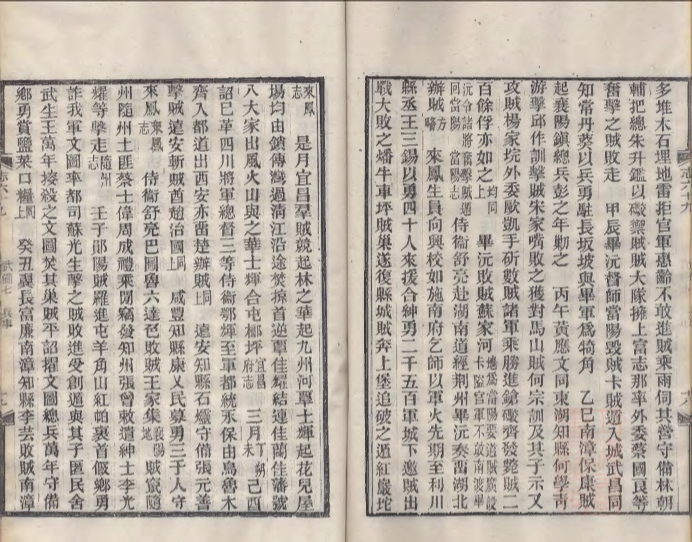 多堆木石埋地雷拒官軍惠齡不敢進賊乘雨伺其營守備林朝
輔把總朱升鑑以礮禦賊賊大隊擁上富志那率外委蔡國良等
奮擊之賊敗走 甲辰畢沅督師當陽毀賊卡賊遁入城武昌同
知常丹葵以兵勇駐長坂坡與畢軍爲犄角 乙巳南漳保康賊
起襄陽鎮總兵彭之年勦之 丙午黃應文同東湖知縣何學青
游擊邱作訓擊賊宋家嘴敗之獲對馬山賊何宗訓及其子示又
攻賊楊家垸外委歐凱手斫數賊諸軍乘勝進鎗礮齊發斃賊二
百餘俘亦如之上均同 畢沅敗賊蘇家河
沅令諸將奮擊賊遁回當陽當陽志 侍衞舒亮赴湖南道經荆州畢沅奏畱湖北
辦賊方略 來鳳生員向興校如施南府乞師以軍火先期至利川
縣丞王三錫以勇四十人來援合紳勇二千五百軍城下邀賊出
戰大敗之燔牛車坪賊巢遂復縣城賊奔上堡追破之遁紅巖坨
來鳳志 是月宜昌羣賊競起林之華起九州河覃士輝起花兒屋
場均由鎖傳灣過淸江沿途焚掠首逆覃佳耀結連佳蘭佳藩號
八大家出風火山與之華士輝合屯榔坪宜昌府志 三月丁未朔己酉
詔已革四川將軍總督三等侍衞鄂輝至軍都統永保由烏魯木
齊入都道出西安亦畱楚辦賊上同 遠安知縣石繼守備張元善
擊賊遠安斬賊酋趙治國上同 咸豐知縣康乂民募勇三千人守
來鳳來鳳志 侍衞舒亮巴圖魯六達色敗賊王家集襄陽地 賊竄隨
州隨州土匪蔡士偉周成禮乘閒竊發知州張曾敕遣紳士李光
耀等擊走隨州志 王于郧陽賊羅進屯羊角山紅帕裹首假鄉勇
詐我軍文圖率都司蘇光生擊之賊敗進受創遁與其子匿民舍
武生王萬年接殺之文圖焚其巢賊平詔擢文圖總兵萬年守備
鄉勇賞鹽菜口糧上同 癸丑襄長富廉南漳知縣李芸敗賊南漳